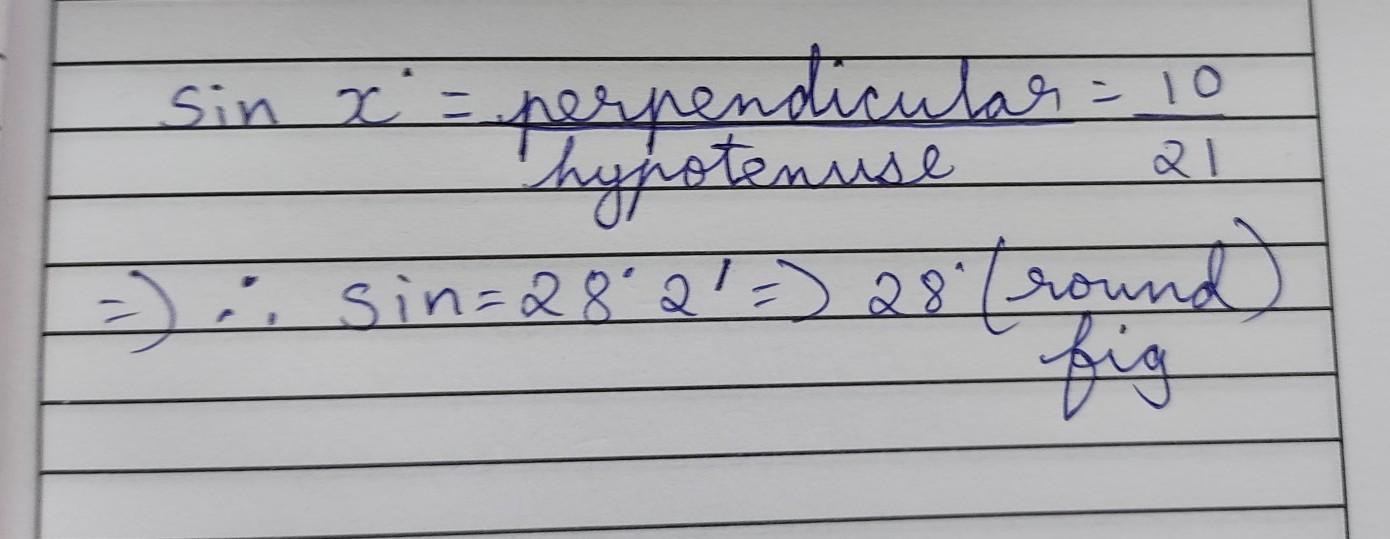 sin x° = perpendicular = 10
hypotenuse 21
=) ∴ sin = 28° 2' =) 28° (round)
fig